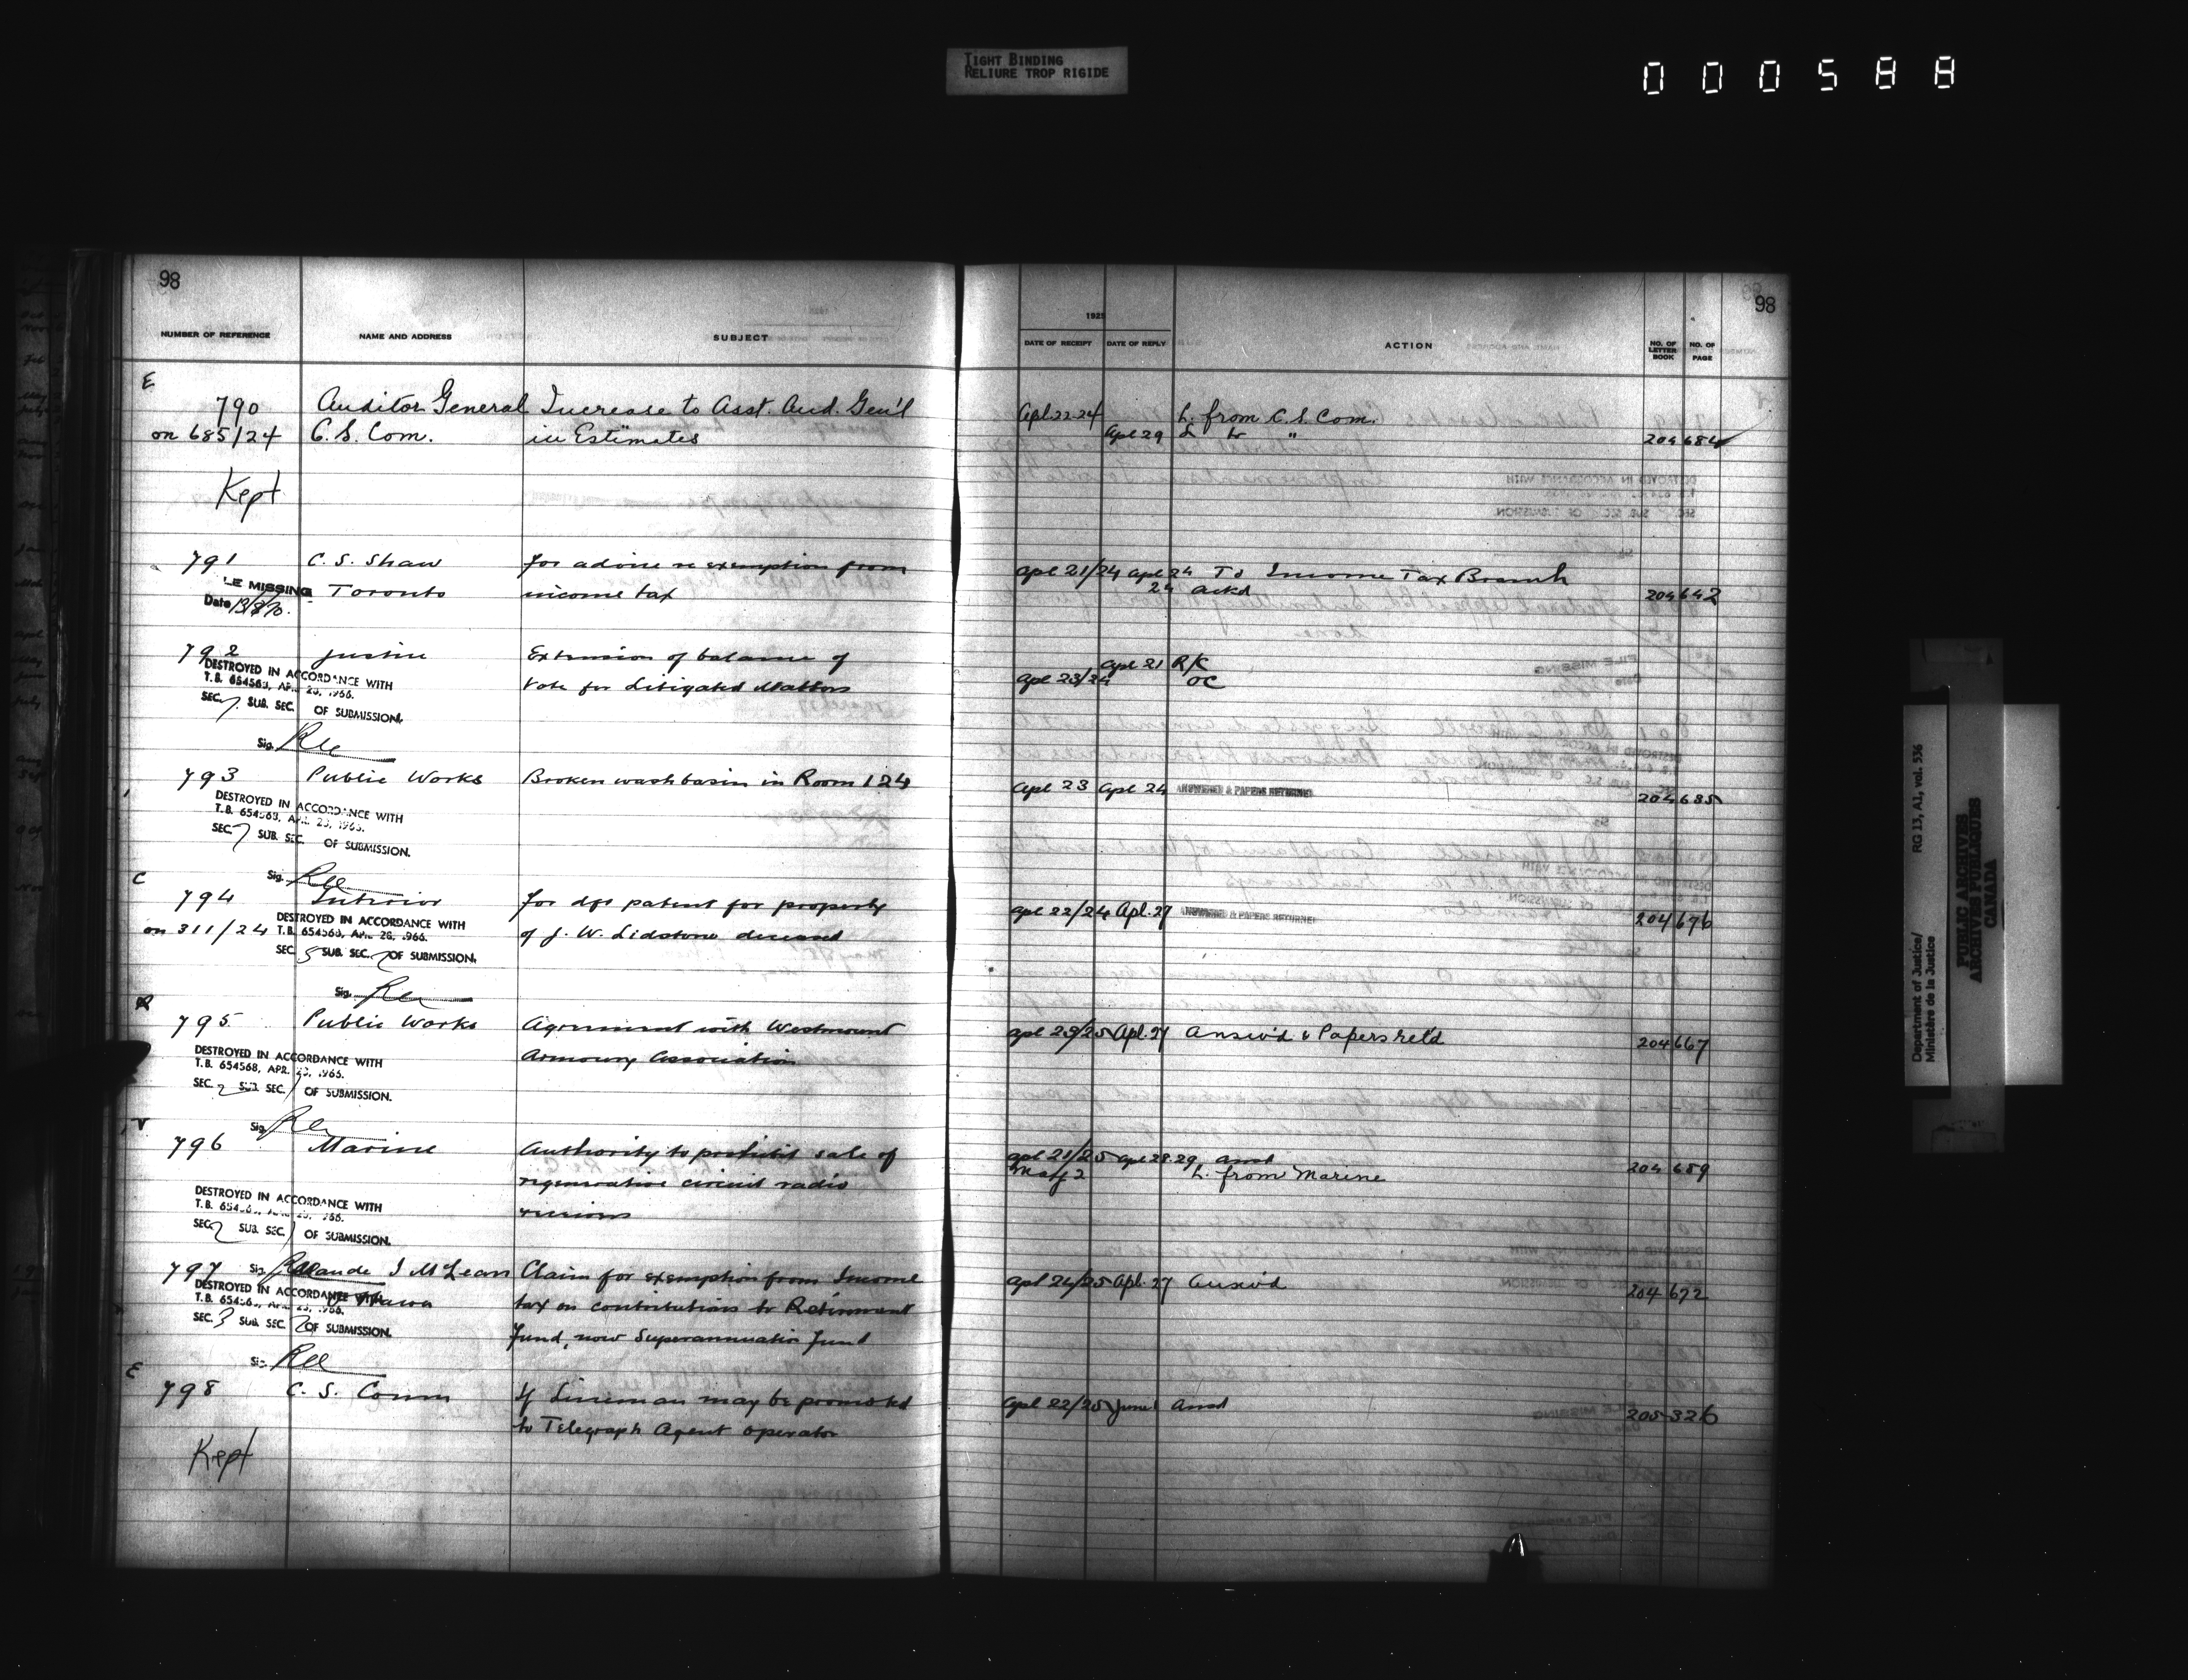 TIGHT BINDING
RELIURE TROP RIGIDE
000588
98
98
NUMBER OF REFERENCE NAME AND ADDRESS SUBJECT 1925 DATE OF RECEIPT DATE OF REPLY ACTION NO. OF LETTER BOOK NO. OF PAGE
E
790 Auditor General Increase to Asst. Aud. Gen'l Apl. 22-24 L. from C.S. Com.
on 685/24 C.S. Com. in Estimates Apl 29 L to " 204 684
Kept
791 C. S. Shaw for advice re exemption from apl 21/24 apl 24 To Income Tax Branch
LE MISSING Toronto income tax 24 ackd 204 642
Date 13/8/70.
792 Justice Extension of balance of apl 21 R/C
DESTROYED IN ACCORDANCE WITH Vote for Litigated Matters apl 23/24 OC
T.B. 654568, APR. 28, 1966.
SEC. 7 SUB. SEC. OF SUBMISSION.
Sig.
793 Public Works Broken wash basin in Room 124 apl 23 apl 24 ANSWERED & PAPERS RETURNED 204 685
DESTROYED IN ACCORDANCE WITH
T.B. 654568, APR. 28, 1966.
SEC. 7 SUB. SEC. OF SUBMISSION.
Sig.
C
794 Interior for dft patent for property apl 22/24 Apl. 27 ANSWERED & PAPERS RETURNED 204 676
on 311/24 DESTROYED IN ACCORDANCE WITH of J. W. Lidstone deceased
T.B. 654568, APR. 28, 1966.
SEC. 5 SUB. SEC. 2 OF SUBMISSION.
Sig.
R
795 Public Works Agreement with Westmount apl 23/25 Apl. 27 Answ'd & Papers ret'd 204 667
Armoury Association
DESTROYED IN ACCORDANCE WITH
T.B. 654568, APR. 28, 1966.
SEC. 2 SUB. SEC. 1 OF SUBMISSION.
Sig.
V
796 Marine Authority to prohibit sale of apl 21/25 apl 28 29 ansd 204 689
regenerative circuit radio May 2 L. from Marine
receivers
DESTROYED IN ACCORDANCE WITH
T.B. 654568, APR. 28, 1966.
SEC. 2 SUB. SEC. 1 OF SUBMISSION.
797 Sig. Claude I McLean Claim for exemption from Income apl 24/25 Apl. 27 Answ'd 204 672
DESTROYED IN ACCORDANCE WITH Ottawa tax on contributions to Retirement
T.B. 654568, APR. 28, 1966.
SEC. 3 SUB. SEC. 2 OF SUBMISSION. Fund, now Superannuation Fund
Sig.
E
798 C. S. Comm If Lineman may be promoted apl 22/25 June 1 Ansd 205 326
to Telegraph Agent operator
Kept
Department of Justice/ RG 13, A1, vol. 536
Ministère de la Justice
PUBLIC ARCHIVES
ARCHIVES PUBLIQUES
CANADA